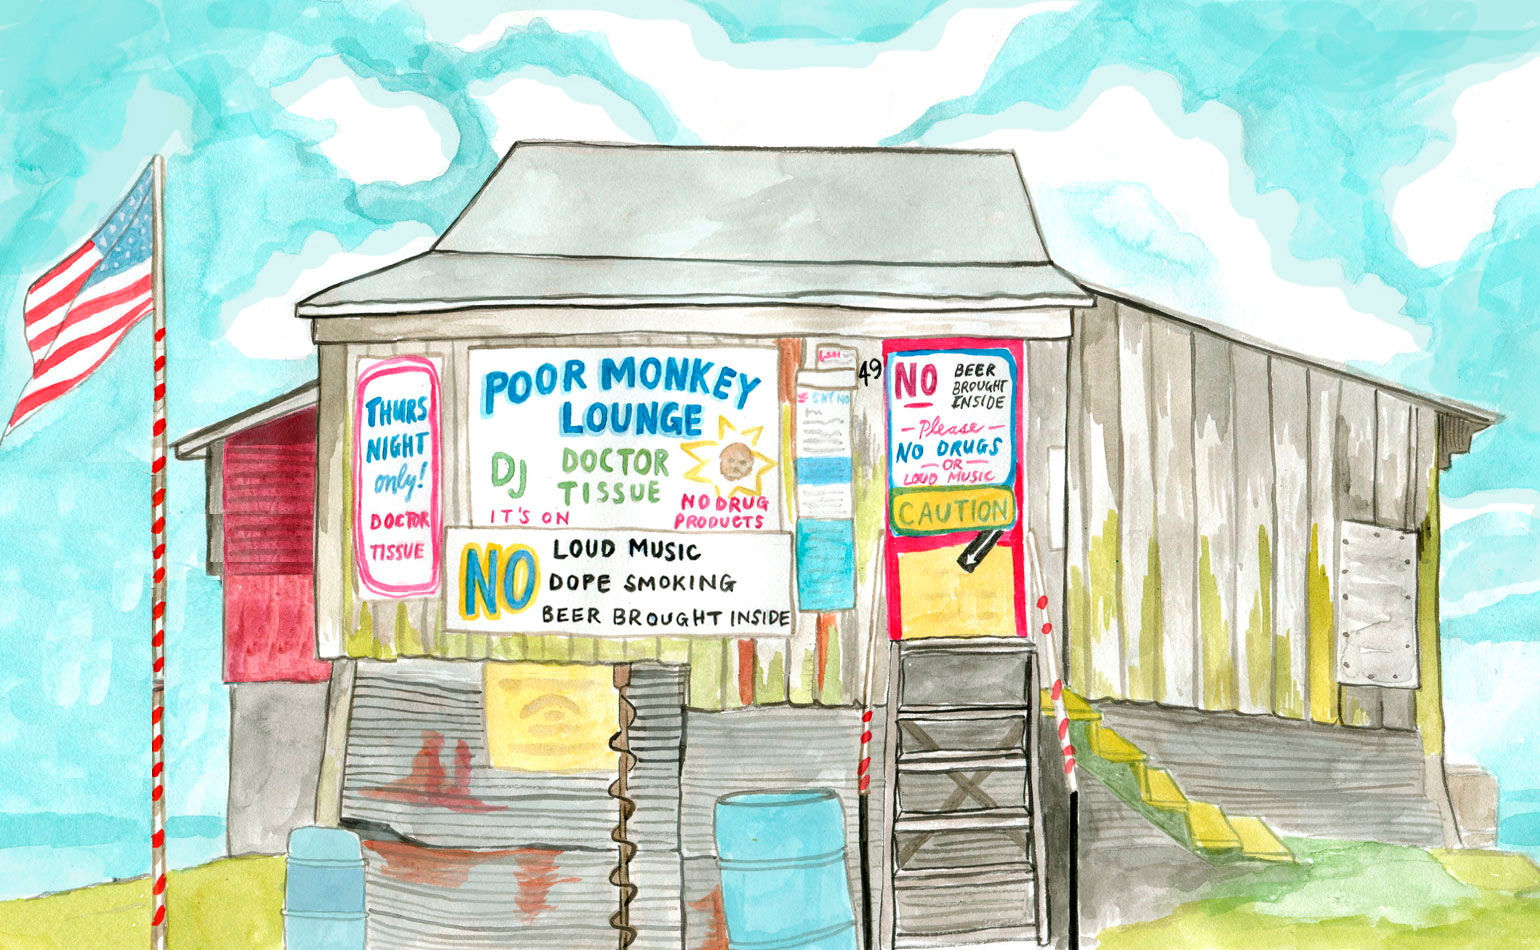 THURS
NIGHT
only!
DOCTOR
TISSUE
POOR MONKEY
LOUNGE
DJ
DOCTOR
TISSUE
IT'S ON
NO DRUG
PRODUCTS
NO
LOUD MUSIC
DOPE SMOKING
BEER BROUGHT INSIDE
49
NO
BEER
BROUGHT
INSIDE
- Please -
NO DRUGS
- OR -
LOUD MUSIC
CAUTION